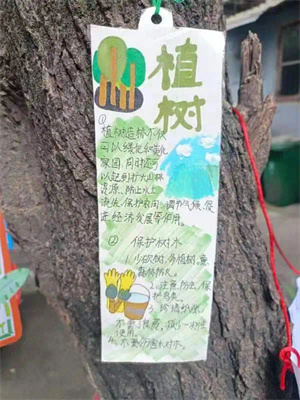 植
树
①
植树造林不仅
可以绿化和美化
家园,同时还可
以起到扩大山林
资源、防止水土
流失,保护农田,调节气候,促
进经济发展等作用。
② 保护树木
1.少砍树,多植树,
森林防火。
2.注意防虫,保
护鸟类。
3.珍惜纸张,
不要浪费,
使用。
4.不要伤害树木。